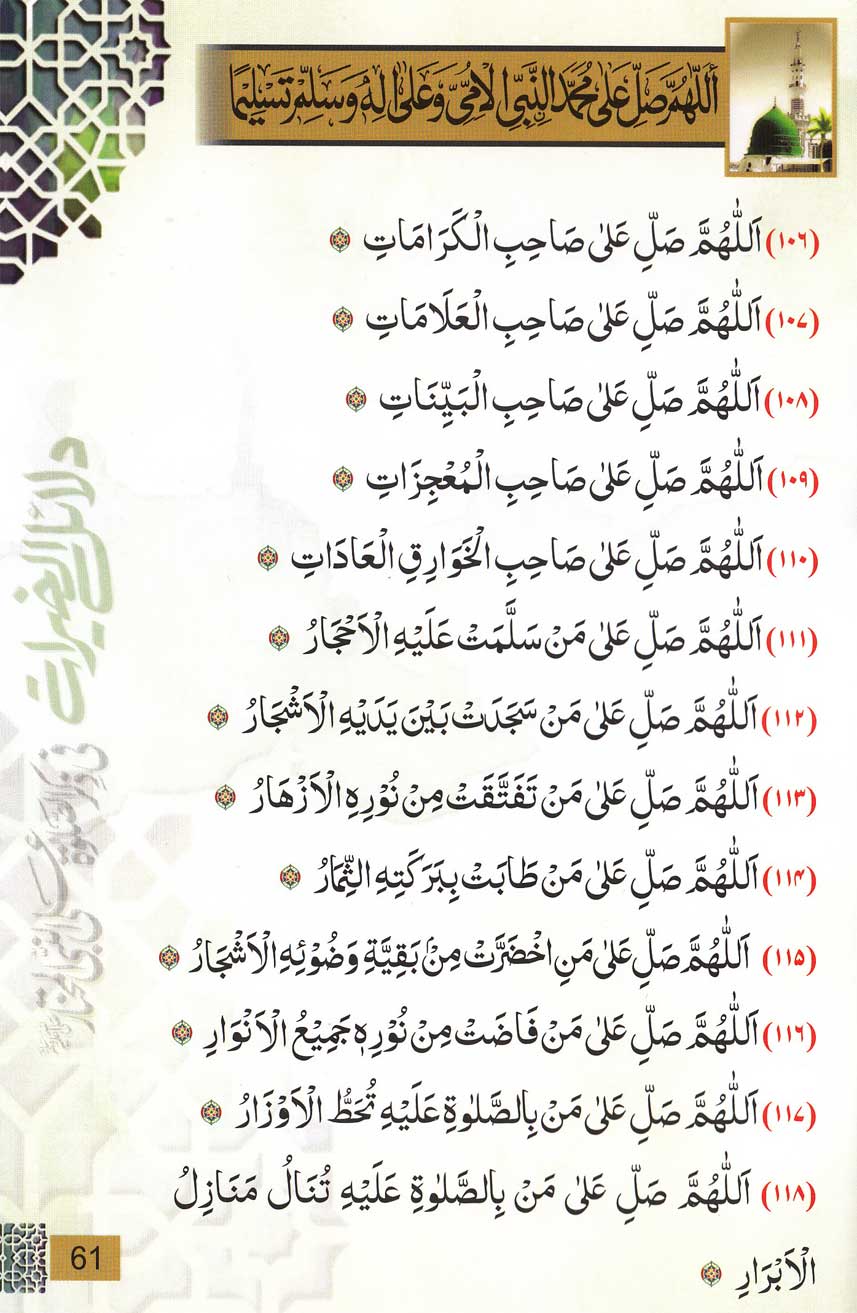 اَللّٰهُمَّ صَلِّ عَلٰى مُحَمَّدِ النَّبِيِّ الْاُمِّيِّ وَعَلٰى اٰلِهٖ وَسَلِّمْ تَسْلِيْمًا
(۱۰۶) اَللّٰهُمَّ صَلِّ عَلٰى صَاحِبِ الْكَرَامَاتِ
(۱۰۷) اَللّٰهُمَّ صَلِّ عَلٰى صَاحِبِ الْعَلَامَاتِ
(۱۰۸) اَللّٰهُمَّ صَلِّ عَلٰى صَاحِبِ الْبَيِّنَاتِ
(۱۰۹) اَللّٰهُمَّ صَلِّ عَلٰى صَاحِبِ الْمُعْجِزَاتِ
(۱۱۰) اَللّٰهُمَّ صَلِّ عَلٰى صَاحِبِ الْخَوَارِقِ الْعَادَاتِ
(۱۱۱) اَللّٰهُمَّ صَلِّ عَلٰى مَنْ سَلَّمَتْ عَلَيْهِ الْاَحْجَارُ
(۱۱۲) اَللّٰهُمَّ صَلِّ عَلٰى مَنْ سَجَدَتْ بَيْنَ يَدَيْهِ الْاَشْجَارُ
(۱۱۳) اَللّٰهُمَّ صَلِّ عَلٰى مَنْ تَفَتَّقَتْ مِنْ نُوْرِهِ الْاَزْهَارُ
(۱۱۴) اَللّٰهُمَّ صَلِّ عَلٰى مَنْ طَابَتْ بِبَرَكَتِهِ الثِّمَارُ
(۱۱۵) اَللّٰهُمَّ صَلِّ عَلٰى مَنِ اخْضَرَّتْ مِنْۢ بَقِيَّةِ وَضُوْئِهِ الْاَشْجَارُ
(۱۱۶) اَللّٰهُمَّ صَلِّ عَلٰى مَنْ فَاضَتْ مِنْ نُوْرِهٖ جَمِيْعُ الْاَنْوَارِ
(۱۱۷) اَللّٰهُمَّ صَلِّ عَلٰى مَنْ بِالصَّلٰوةِ عَلَيْهِ تُحَطُّ الْاَوْزَارُ
(۱۱۸) اَللّٰهُمَّ صَلِّ عَلٰى مَنْ بِالصَّلٰوةِ عَلَيْهِ تُنَالُ مَنَازِلُ
الْاَبْرَارِ
دلائل الخيرات
61